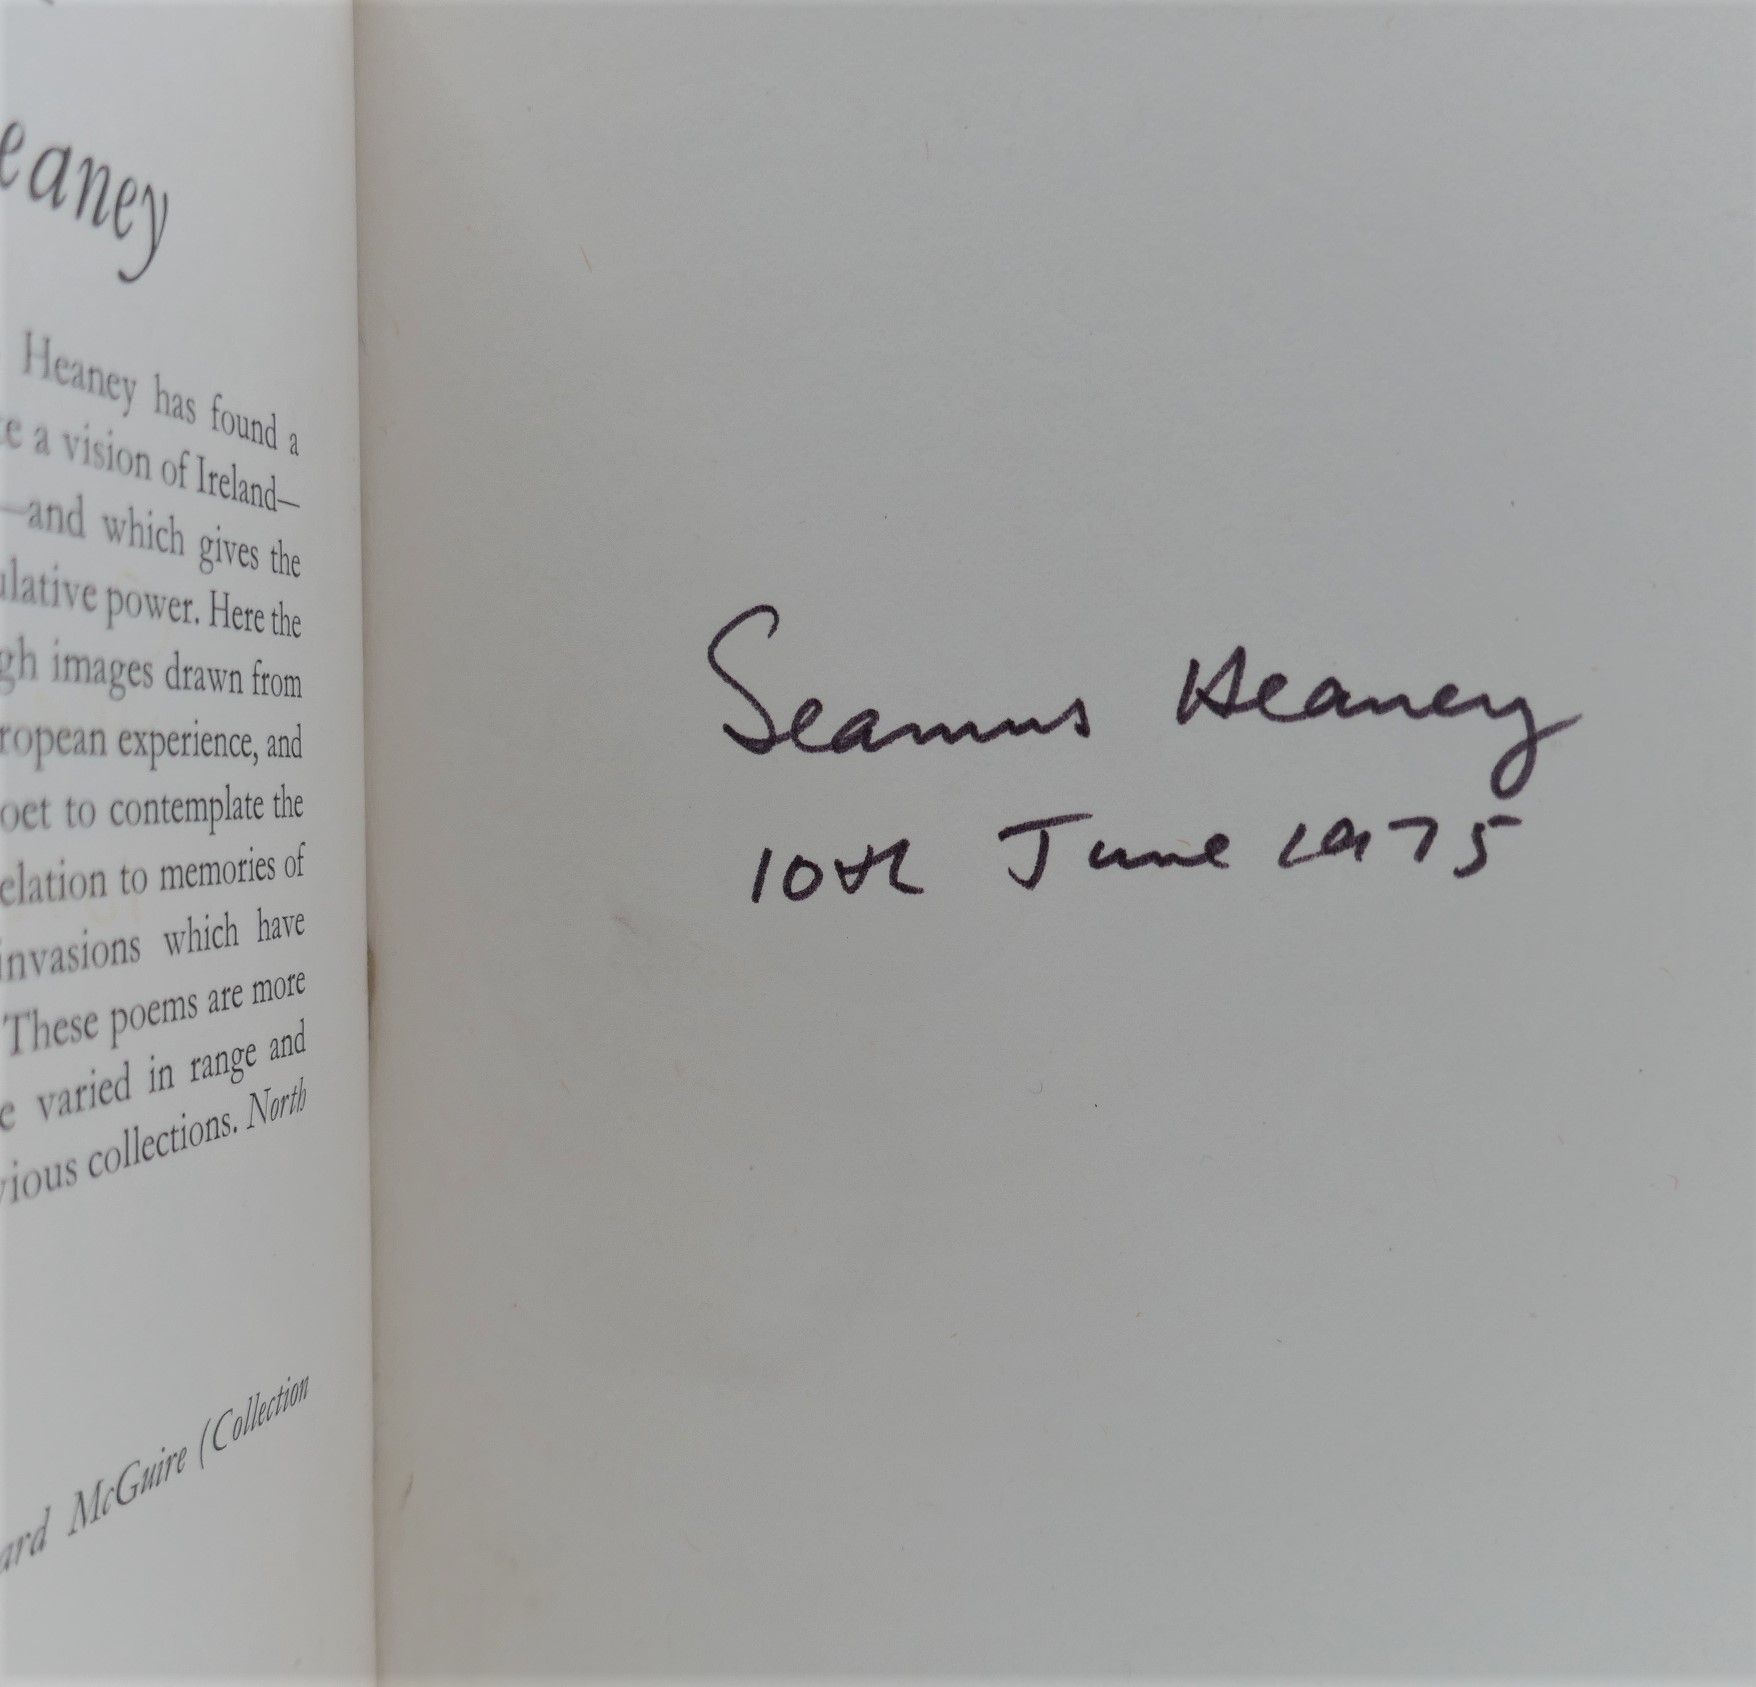 eaney
Heaney has found a
te a vision of Ireland—
—and which gives the
ulative power. Here the
gh images drawn from
ropean experience, and
oet to contemplate the
elation to memories of
invasions which have
These poems are more
e varied in range and
vious collections. North
ard McGuire (Collection
Seamus Heaney
10th June 1975